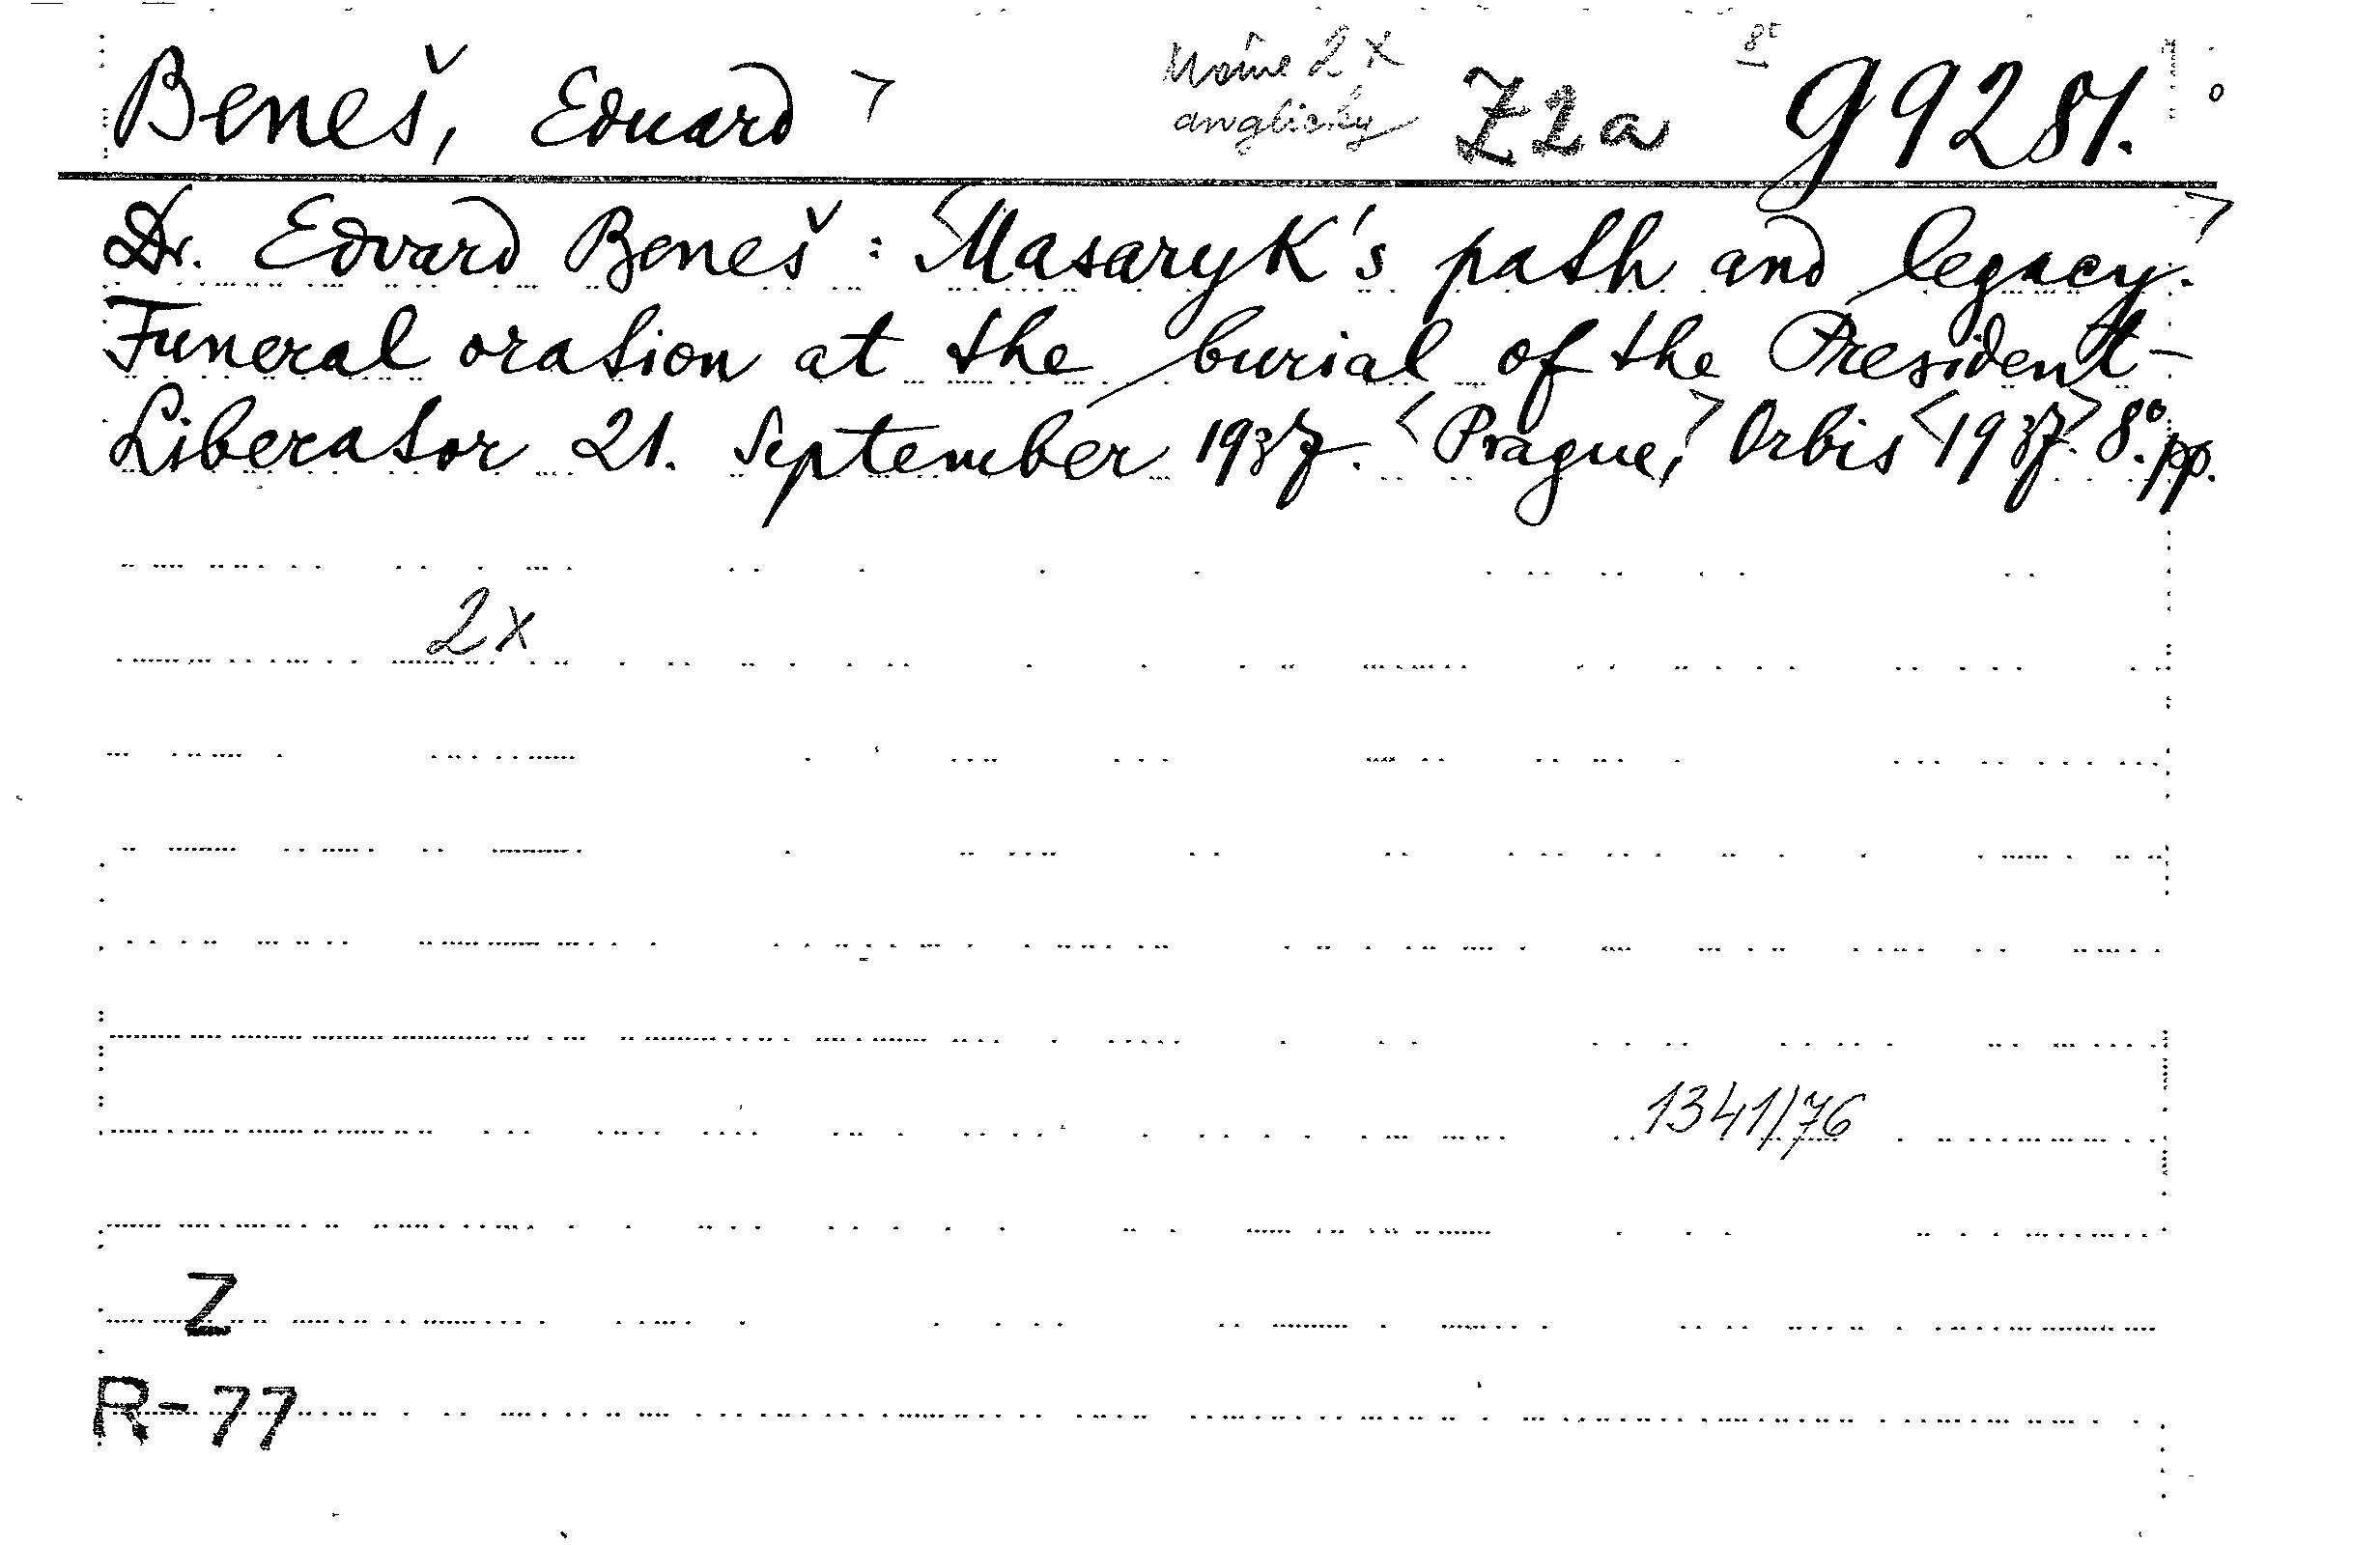 Beneš, Eduard > Máme 2x anglicky Z2a 8° g 9281.
Dr. Edvard Beneš: <Masaryk's path and legacy.>
Funeral oration at the burial of the President-
Liberator 21. September 1937. <Prague,> Orbis <1937>. 8°. pp.
2x
1341/76
Z
R-77